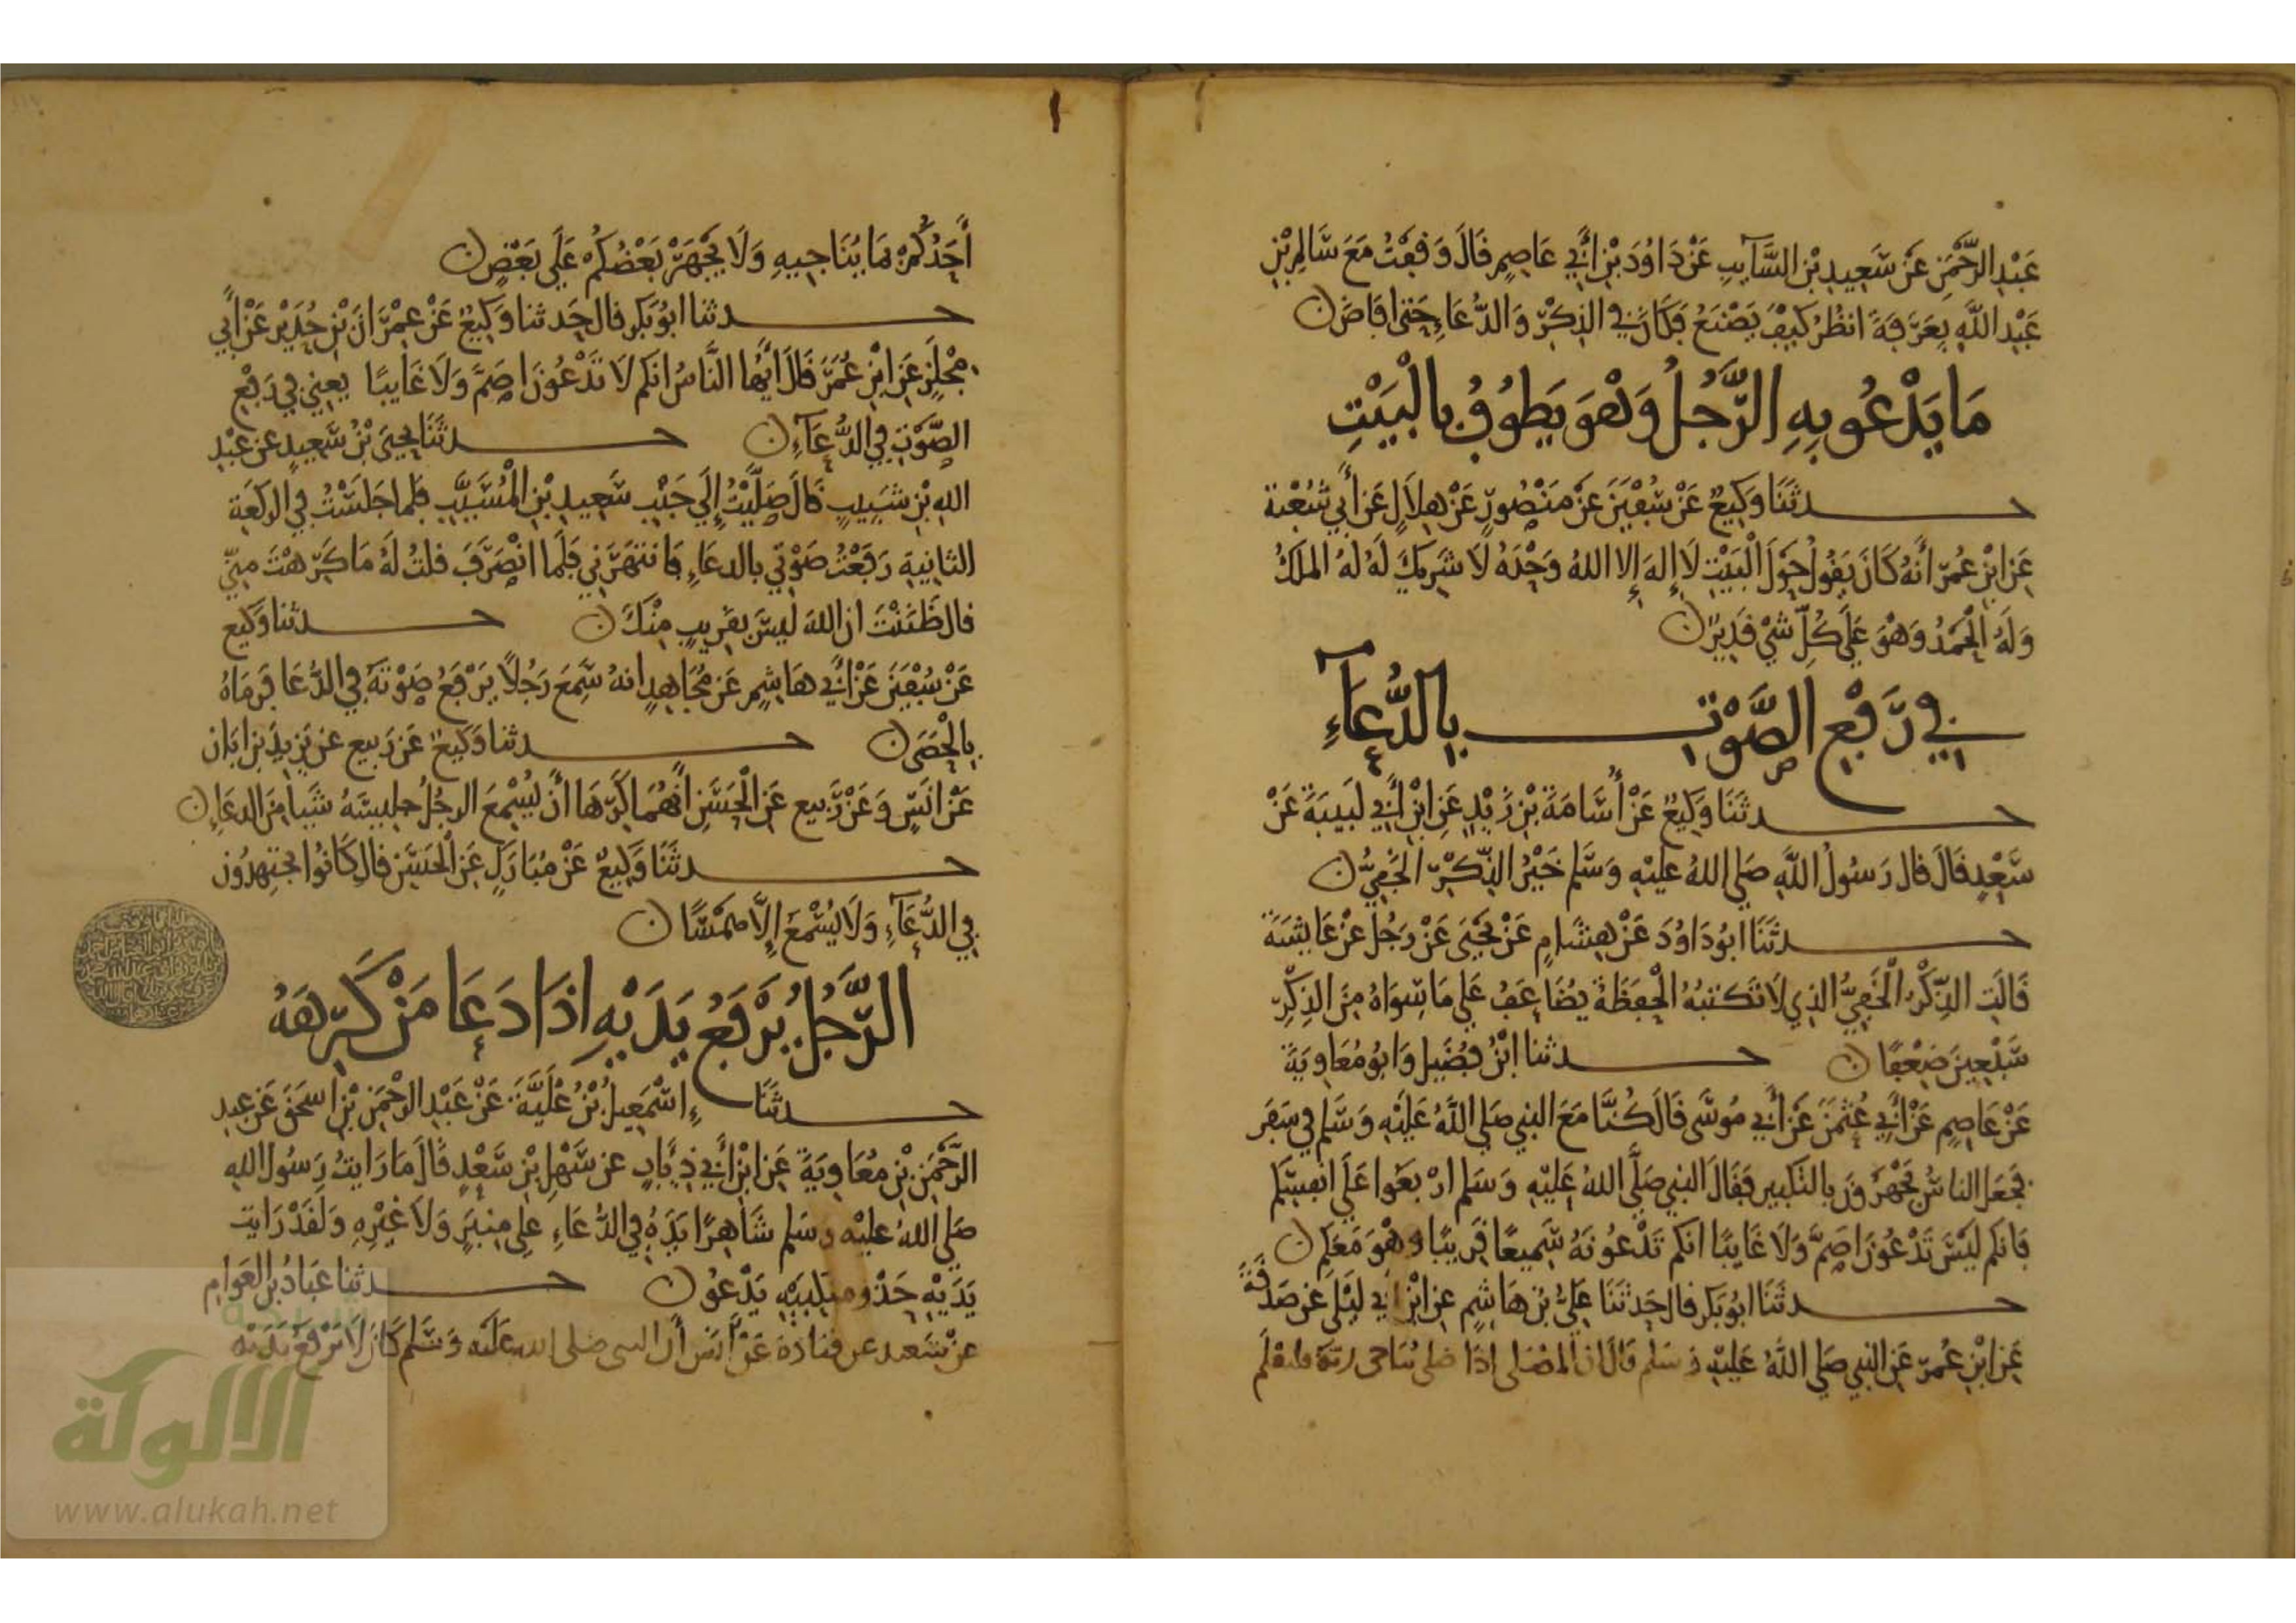 عَبْدِ الرَّحْمَنِ عَنْ سَعِيدِ بْنِ السَّآيِبِ عَنْ دَاوُدَ بْنِ أَبِي عَاصِمٍ قَالَ وَقَفْتُ مَعَ سَالِمِ بْنِ
عَبْدِ اللَّهِ بِعَرَفَةَ انظُرُ كَيْفَ يَصْنَعُ فَكَانَ فِي الذِكْرِ وَالدُّعَاءِ حَتى افَاضَ
مَا يَدْعُو بِهِ الرَّجُلُ وَهْوَ يَطُوفُ بِالْبَيْتِ
حدثَنَا وَكِيعٌ عَنْ سُفْيَنَ عَنْ مَنْصُورٍ عَنْ هِلَالٍ عَنْ أَبِي شُعْبَة
عَنِ ابْنِ عُمَرَ أَنَّهُ كَانَ يَقُولُ حَوْلَ الْبَيْتِ لَا إِلهَ إِلا اللهُ وَحْدَهُ لَا شَرِيكَ لَهُ لَهُ الملكُ
وَلَهُ الْحَمْدُ وَهْوَ عَلَى كُلِّ شَيْ قَدِيرٌ
فِي رَفْعِ الصَّوْتِ بِالدُّعَآءِ
حدثَنَا وَكِيعٌ عَنْ أُسَامَةَ بْنِ زَيْدٍ عَنِ ابْنِ أَبِي لَبِيبَةَ عَنْ
سَعْدٍ قَالَ قال رَسُولُ اللَّهِ صَلى اللهُ عليْهِ وَسَلم خَيْرُ الذِّكْرِ الْخَفِيُّ
حدثَنَا ابُو دَاوُدَ عَنْ هِشَامٍ عَنْ يَحْيَى عَنْ رَجُل عَنْ عَايشَةَ
قَالَتِ الذِّكْرُ الْخَفِيُّ الذِي لَا تَكتبُهُ الْحَفَظَةُ يُضَاعَفُ عَلَى مَا سِوَاهُ مِنَ الذِكْرِ
سَبْعِينَ ضِعْفًا حدثنا ابْنُ فُضَيلٍ وَابُو مُعَاوِيَةَ
عَنْ عَاصِمٍ عَنْ أَبِي عُثْمَنَ عَنْ أَبِي مُوسَى قَالَ كُنَّا مَعَ النبِي صَلى اللَّهُ عَلَيْهِ وَسَلم فِي سَفَرٍ
فجعَل الناسُ يَجْهَرُونَ بِالتَكبِيرِ فَقَالَ النبِي صَلَّى اللهُ عَلَيْهِ وَسَلم ارْبَعُوا عَلَى انفسكم
فَانكم لَيْسَ تَدْعُونَ اصَمَّ وَلَا غَايبًا انكم تَدْعُونَهُ سَمِيعًا قَرِيبًا وَهْوَ مَعَكم
حدثَنَا ابُو بَكر قال حَدثَنَا عَلِيُّ بْنُ هَاشِمٍ عَنِ ابْنِ أَبِي لَيْلَى عَنْ صَدَقَةَ
عَنِ ابْنِ عُمَرَ عَنِ النبِي صَلى اللَّهُ عَليْهِ وَسَلم قَالَ ان المُصَلى إِذَا صَلى يُنَاجِى رَبَّهُ فليَعْلَم
أَحَدُكُمْ مَا يُنَاجِيهِ وَلَا يَجْهَرْ بَعْضُكُمْ عَلَى بَعْضٍ
حدثنا ابُو بَكر قال حَدثنا وَكِيعٌ عَنْ عِمْرَانَ بْنِ حُدَيْرٍ عَنْ أَبِي
مِجْلَزٍ عَنِ ابْنِ عُمَرَ قَالَ أَيُّهَا النَّاسُ انكم لَا تَدْعُونَ اصَمَّ وَلَا غَايبًا يعني فِي رَفْعِ
الصَّوْتِ فِي الدُّعَآءِ حدثَنَا يحيَى بْنُ سَعِيدٍ عَن عَبْدِ
اللهِ بْنِ شبِيبٍ قَالَ صَلَّيْتُ إِلَى جَنْبِ سَعِيدِ بْنِ الْمُسَيَّبِ فَلما جَلَسْتُ فِي الركعَة
الثانِيةِ رَفَعْتُ صَوْتِي بالدعَاءِ فَانتهَرَنِي فَلَما انْصَرَفَ قلتُ لَهُ مَا كَرِهْتَ مِنِّي
قال ظَنَنْتَ ان اللهَ لَيسَ بقَرِيبٍ مِنْكَ حدثنا وَكيع
عَنْ سُفْيَنَ عَنْ أَبِي هَاشِمٍ عَن مُجَاهِدٍ انهُ سَمِعَ رَجُلًا يَرْفَعُ صَوْتَهُ فِي الدُّعَا فَرَمَاهُ
بِالْحَصَى حدثنا وَكيع عَن رَبيع عن يَزِيدَ بن ابَان
عَنْ انَسٍ وَعَنْ رَبيع عَنِ الْحَسَنِ أَنهُمَا كَرِهَا أَنْ يُسْمِعَ الرجُلُ جليسَهُ شَيأ مِنَ الدعَاءِ
حدثَنَا وَكِيعٌ عَنْ مُبَارَكٍ عَنِ الْحَسَنِ قال كَانُوا يجتهِدُون
فِي الدُّعَآءِ وَلَا يُسْمَعُ إِلَّا هَمْسًا
الرَّجُلُ يَرْفَعُ يَدَيْهِ اذَا دَعَا مَنْ كَرِهَهُ
حدثَنَا إِسْمَعِيلُ بْنُ عُلَيَّةَ عَنْ عَبْدِ الرَّحْمَنِ بْنِ اسحَقَ عَن عبد
الرَّحْمَنِ بْنِ مُعَاوِيَةَ عَنِ ابْنِ أَبِي ذِيَابٍ عن سَهْلِ بْنِ سَعْدٍ قَالَ مَا رَايتُ رَسُول اللهِ
صَلى اللهُ عليْهِ وسَلم شَاهِرًا يَدَهُ فِي الدُّعَاءِ عَلى مِنبَرٍ وَلَا غَيْرِهِ وَلَقَدْ رَايت
يَدَيْهِ حَذْو منكبَيْهِ يَدْعُو حدثنا عَبَادُ بن العَوامِ
عَنْ سَعيد عن قتادَة عَنْ أَنَس أَن النبى صلى الله عَليْه وَسَلم كَانَ لَا يَرْفَعُ يَدَيْه
الألوكة
www.alukah.net